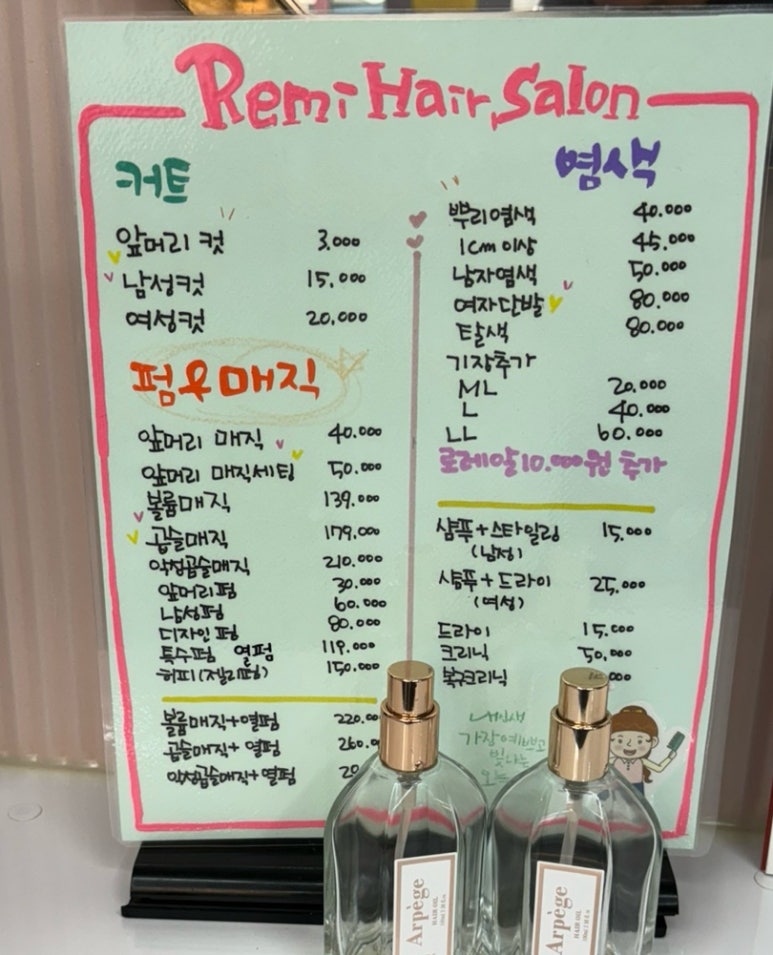 Remi Hair Salon
커트
앞머리 컷 3.000
남성컷 15.000
여성컷 20.000
펌&매직
앞머리 매직 40.000
앞머리 매직세팅 50.000
볼륨매직 139.000
곱슬매직 179.000
악성곱슬매직 210.000
앞머리펌 30.000
남성펌 60.000
디자인펌 80.000
특수펌 열펌 119.000
허피(젤리펌) 150.000
볼륨매직+열펌 220.00
곱슬매직+ 열펌 260.0
악성곱슬매직+열펌
염색
뿌리염색 40.000
1cm이상 45.000
남자염색 50.000
여자단발 80.000
탈색 80.000
기장추가
ML 20.000
L 40.000
LL 60.000
로레알10.000원 추가
샴푸+스타일링 15.000
(남성)
샴푸+드라이 25.000
(여성)
드라이 15.000
크리닉 50.000
복구크리닉
내인생
가장예쁘고
빛나는
오늘
Arpège
HAIR OIL
Arpège
HAIR OIL